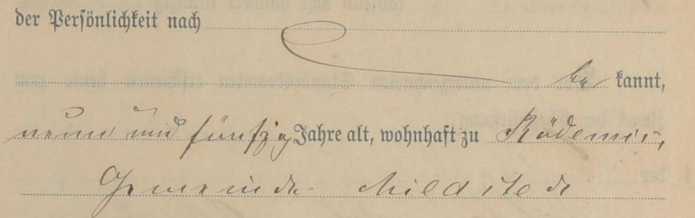 der Persönlichkeit nach
be kannt,
neun und fünfzig Jahre alt, wohnhaft zu Rödemis,
Gemeinde Mildstedt